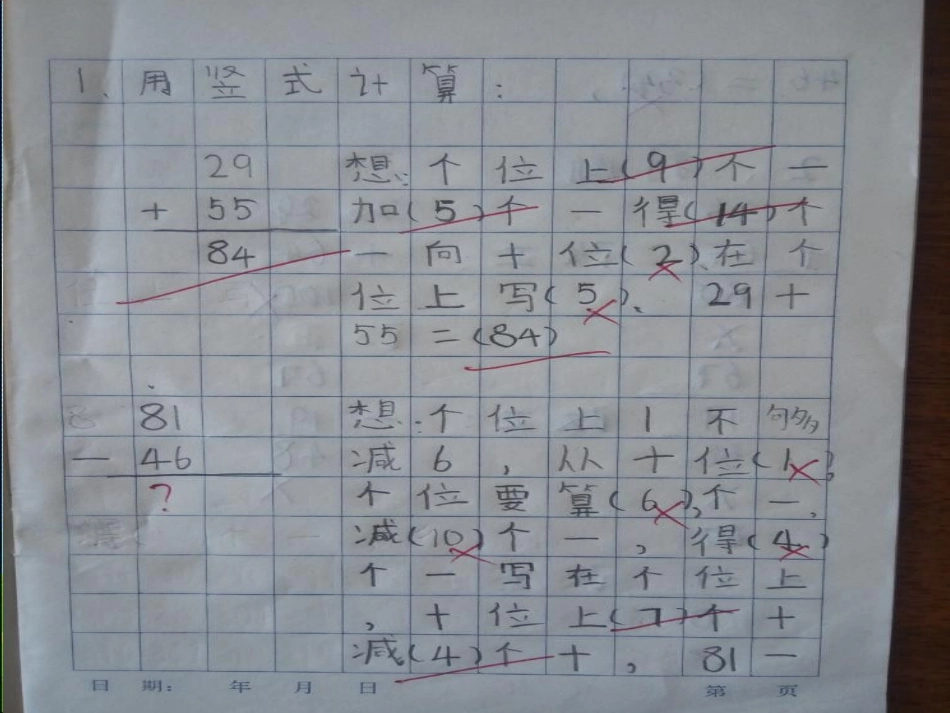 1、用竖式计算:
29 想:个位上(9)个一
+ 55 加(5)个一得(14)个
84 一向十位(2)、在个
位上写(5)、29+
55=(84)
81 想:个位上1不够
- 46 减6,从十位(1),
? 个位要算(6),个一,
减(10)个一,得(4)
个一写在个位上
,十位上(7)个十
减(4)个十,81-
日期: 年 月 日 第 页